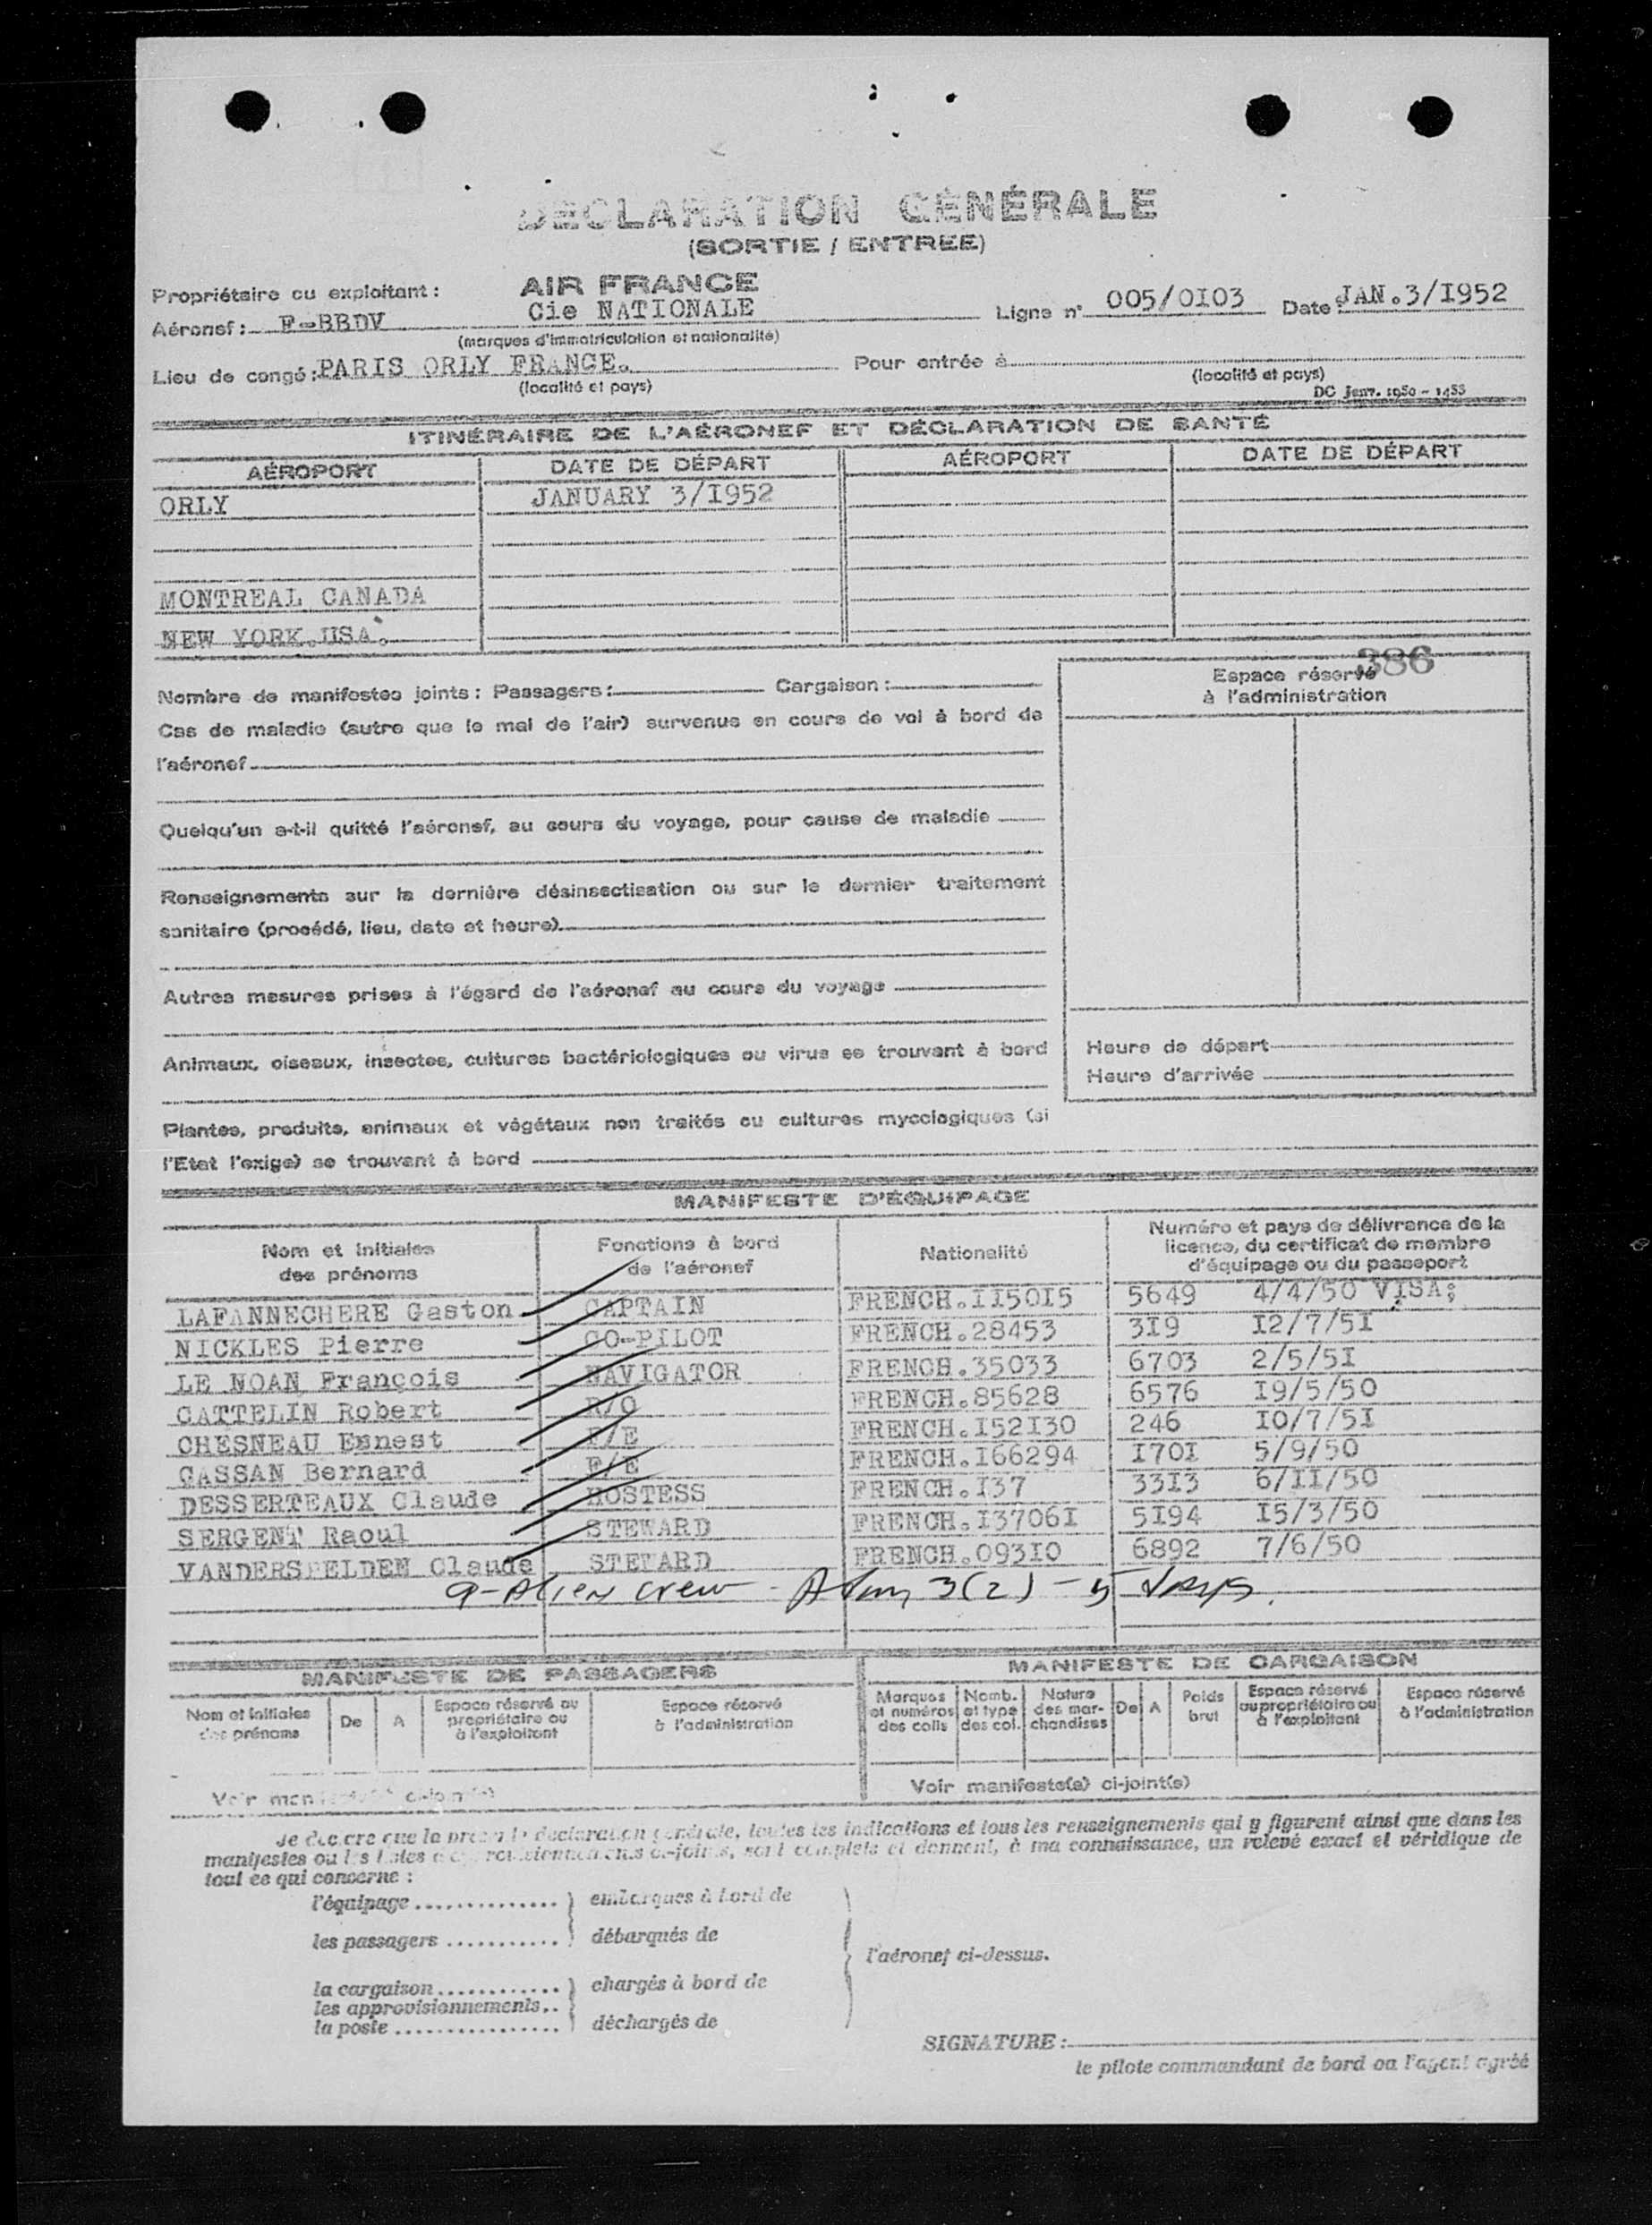 DÉCLARATION GÉNÉRALE
(SORTIE / ENTRÉE)
Propriétaire ou exploitant : AIR FRANCE
Cie NATIONALE
Ligne n° 005/0I03 Date JAN.3/I952
Aéronef : F-BBDV
(marques d'immatriculation et nationalité)
Lieu de congé : PARIS ORLY FRANCE. Pour entrée à
(localité et pays) (localité et pays)
DC Janv. 1950 - 1453
ITINÉRAIRE DE L'AÉRONEF ET DÉCLARATION DE SANTÉ
AÉROPORT DATE DE DÉPART AÉROPORT DATE DE DÉPART
ORLY JANUARY 3/I952
MONTREAL CANADA
NEW YORK.USA.
386
Nombre de manifestes joints : Passagers : Cargaison :
Espace réservé
à l'administration
Cas de maladie (autre que le mal de l'air) survenus en cours de vol à bord de
l'aéronef
Quelqu'un a-t-il quitté l'aéronef, au cours du voyage, pour cause de maladie
Renseignements sur la dernière désinsectisation ou sur le dernier traitement
sanitaire (procédé, lieu, date et heure)
Autres mesures prises à l'égard de l'aéronef au cours du voyage
Animaux, oiseaux, insectes, cultures bactériologiques ou virus se trouvant à bord
Heure de départ
Heure d'arrivée
Plantes, produits, animaux et végétaux non traités ou cultures mycologiques (si
l'Etat l'exige) se trouvant à bord
MANIFESTE D'ÉQUIPAGE
Nom et initiales
des prénoms
Fonctions à bord
de l'aéronef
Nationalité
Numéro et pays de délivrance de la
licence, du certificat de membre
d'équipage ou du passeport
LAFANNECHERE Gaston CAPTAIN FRENCH.II50I5 5649 4/4/50 VISA;
NICKLES Pierre CO-PILOT FRENCH.28453 3I9 I2/7/5I
LE NOAN François NAVIGATOR FRENCH.35033 6703 2/5/5I
CATTELIN Robert R/O FRENCH.85628 6576 I9/5/50
CHESNEAU Ennest F/E FRENCH.I52I30 246 I0/7/5I
CASSAN Bernard F/E FRENCH.I66294 I70I 5/9/50
DESSERTEAUX Claude HOSTESS FRENCH.I37 33I3 6/II/50
SERGENT Raoul STEWARD FRENCH.I3706I 5I94 I5/3/50
VANDERSFELDEN Claude STEWARD FRENCH.093I0 6892 7/6/50
9-Alien crew - Adm 3(2) - 5 days.
MANIFESTE DE PASSAGERS MANIFESTE DE CARGAISON
Nom et initiales
des prénoms
De
A
Espace réservé au
propriétaire ou
à l'exploitant
Espace réservé
à l'administration
Marques
et numéros
des colis
Nomb.
et type
des col.
Nature
des mar-
chandises
De
A
Poids
brut
Espace réservé
au propriétaire ou
à l'exploitant
Espace réservé
à l'administration
Voir manifeste(s) ci-joint(s) Voir manifeste(s) ci-joint(s)
Je déclare que la présente déclaration générale, toutes les indications et tous les renseignements qui y figurent ainsi que dans les
manifestes ou les listes d'approvisionnements ci-joints, sont complets et donnent, à ma connaissance, un relevé exact et véridique de
tout ce qui concerne :
l'équipage embarqués à bord de
les passagers débarqués de
l'aéronef ci-dessus.
la cargaison chargés à bord de
les approvisionnements
la poste déchargés de
SIGNATURE :
le pilote commandant de bord ou l'agent agréé